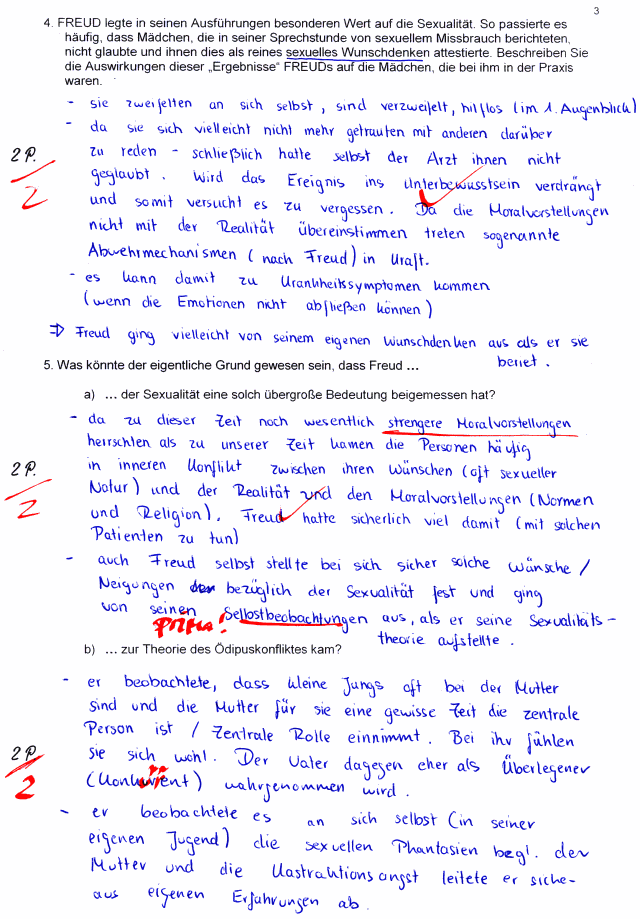 3
4. FREUD legte in seinen Ausführungen besonderen Wert auf die Sexualität. So passierte es
häufig, dass Mädchen, die in seiner Sprechstunde von sexuellem Missbrauch berichteten,
nicht glaubte und ihnen dies als reines sexuelles Wunschdenken attestierte. Beschreiben Sie
die Auswirkungen dieser „Ergebnisse" FREUDs auf die Mädchen, die bei ihm in der Praxis
waren.
- sie zweifelten an sich selbst, sind verzweifelt, hilflos (im 1. Augenblick)
- da sie sich vielleicht nicht mehr getrauten mit anderen darüber
2 P. zu reden - schließlich hatte selbst der Arzt ihnen nicht
geglaubt. Wird das Ereignis ins Unterbewusstsein verdrängt
2 und somit versucht es zu vergessen. Da die Moralvorstellungen
nicht mit der Realität übereinstimmen treten sogenannte
Abwehrmechanismen (nach Freud) in Kraft.
- es kann damit zu Krankheitssymptomen kommen
(wenn die Emotionen nicht abfließen können)
⇒ Freud ging vielleicht von seinem eigenen Wunschdenken aus als er sie
beriet.
5. Was könnte der eigentliche Grund gewesen sein, dass Freud ...
a) ... der Sexualität eine solch übergroße Bedeutung beigemessen hat?
- da zu dieser Zeit noch wesentlich strengere Moralvorstellungen
herrschten als zu unserer Zeit kamen die Personen häufig
2 P. in inneren Konflikt zwischen ihren Wünschen (oft sexueller
Natur) und der Realität und den Moralvorstellungen (Normen
2 und Religion). Freud hatte sicherlich viel damit (mit solchen
Patienten zu tun)
- auch Freud selbst stellte bei sich sicher solche Wünsche /
Neigungen bezüglich der Sexualität fest und ging
von seinen Selbstbeobachtungen aus, als er seine Sexualitäts-
Prima! theorie aufstellte.
b) ... zur Theorie des Ödipuskonfliktes kam?
- er beobachtete, dass kleine Jungs oft bei der Mutter
sind und die Mutter für sie eine gewisse Zeit die zentrale
Person ist / zentrale Rolle einnimmt. Bei ihr fühlen
2 P. sie sich wohl. Der Vater dagegen eher als Überlegener
2 (Konkurrent) wahrgenommen wird.
- er beobachtete es an sich selbst (in seiner
eigenen Jugend) die sexuellen Phantasien bzgl. der
Mutter und die Kastraktionsangst leitete er siche-
aus eigenen Erfahrungen ab.